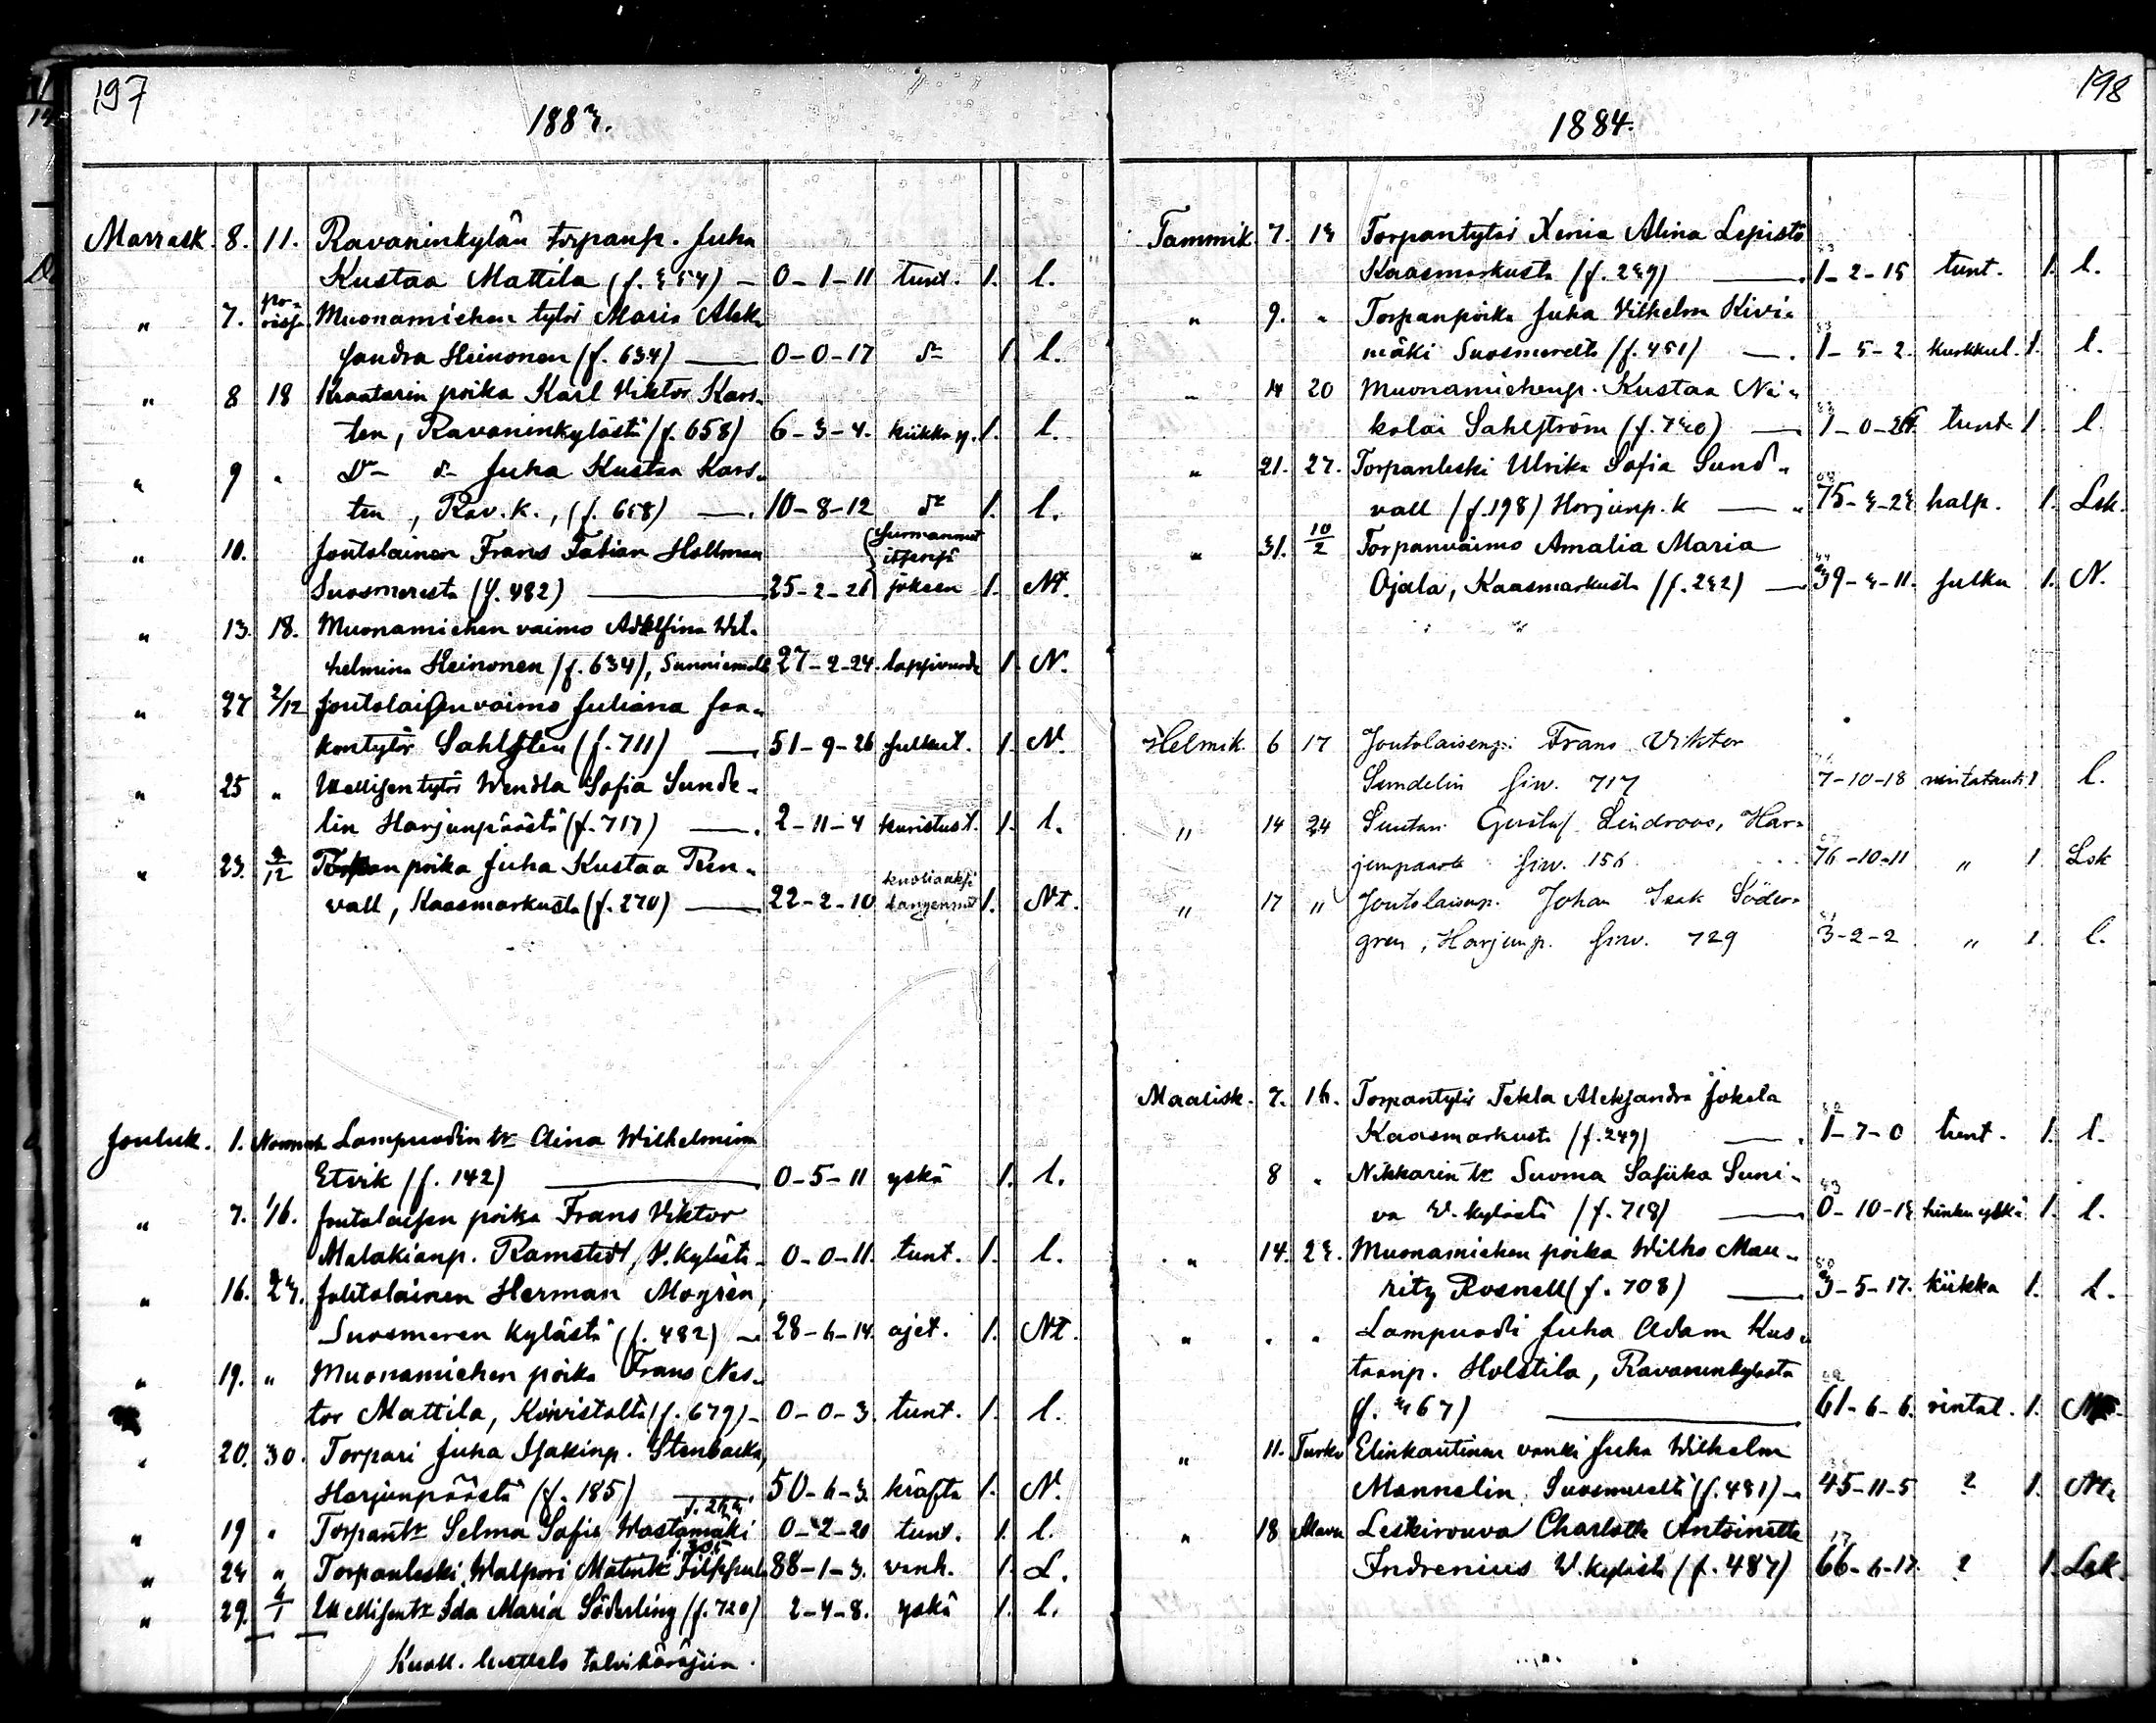 197
1883.
Marrask. 8. 11. Ravaninkylän torpanp. Juha
Kustaa Mattila (f. 354) — 0-1-11 tunt. 1. l.
" 7. Muonamiehen tytör Maria Alek-
sandra Heinonen (f. 634) — 0-0-17 d:o 1. l.
" 8 18 Kraatarin poika Karl Viktor Kars-
ten, Ravaninkylästä (f. 658) 6-3-4. kiikka y. 1. l.
" 9 " D:o d:o Juha Kustaa Kars-
ten, Rav. k., (f. 658) — 10-8-12 d:o 1. l.
" 10. Joutolainen Frans Fabian Hollman (surmannut
itsensä
Suosmeresta (f. 482) — 25-2-21 jokeen 1. Nt.
" 13. 18. Muonamiehen vaimo Adolfina Wil-
helmina Heinonen (f. 634), 27-2-24. lapsivuode 1. N.
" 27 2/12 Joutolaisen vaimo Juliana Jaa-
kontytör Sahlsten (f. 711) — 51-9-26 1. N.
" 25 " Itsellisen tytör Wendla Sofia Sunde-
lin Harjunpäästä (f. 717) — 2-11-4 kuristust. 1. l.
" 23. 2/12 Torpan poika Juha Kustaa
kuoliaaksi
vall, Kaasmarkusta (f. 270) — 22-2-10 1. Nt.
Jouluk. 1. Lampuodin tr Aina Wilhelmina
Etvik (f. 142) — 0-5-11 yskä 1. l.
" 7. 16. Joutolaisen poika Frans Viktor
Malakianp. Ramstedt, V. kylästä - 0-0-11. tunt. 1. l.
" 16. 23. Joutolainen Herman Mogrén,
Suosmeren kylästä (f. 482) — 28-6-14. ajet. 1. Nt.
" 19. " Muonamiehen poika Frans Nes-
tor Mattila, Koivistolta (f. 679) - 0-0-3. tunt. 1. l.
" 20. 30. Torpari Juha Isakinp. Stenbacka,
Harjunpäästä (f. 185) — 50-6-3. kräfta 1. N.
" 19 " Torpantr Selma Sofia Wastamäki 0-2-20 tunt. 1. l.
" 24 " Torpanleski Walpori Matintr 88-1-3. vanh. 1. L.
" 29. 6/1 Itsellisentr Ida Maria Söderling (f. 720) 2-4-8. yskä 1. l.
Kuoll. luettelo talvikäräjiin.
198
1884.
Tammik. 7. 13 Torpantytör Xenia Alina Lepistö
Kaasmarkusta (f. 239) — 1-2-15 tunt. 1. l.
" 9. " Torpanpoika Juha Vilhelm Kivi-
mäki Suosmerelta (f. 451) — 1-5-2. kurkkul. 1. l.
" 14 20 Muonamiehenp. Kustaa Ni-
kolai Sahlström (f. 730) — 1-0-26 tunt. 1. l.
" 21. 27. Torpanleski Ulrika Sofia Sund-
vall (f. 198) Harjunp. k — 75-3-23 halp. 1. Lsk.
" 31. 10/2 Torpanvaimo Amalia Maria
Ojala, Kaasmarkusta (f. 232) — 39-3-11. 1. N.
Helmik. 6 17 Joutolaisenp. Frans Viktor
Sundelin siw. 717 7-10-18 rintataudi 1 l.
" 14 24 Lindroos, Har-
junpäästä siw. 156 76-10-11 " 1. Lsk
" 17 " Joutolaisenp. Johan Isak Söder-
gren, Harjunp. siw. 729 3-2-2 " 1. l.
Maalisk. 7. 16. Torpantytör Tekla Aleksandra Jokela
Kaasmarkusta (f. 249) — 1-7-0 tunt. 1. l.
8 " Nikkarin tr Suoma Safiika Suni-
va V. kylästä (f. 718) — 0-10-13 hinku yskä 1. l.
" 14. 23. Muonamiehen poika Wilho Mau-
ritz Rosnell (f. 708) — 3-5-17. kiikka 1. l.
" " " Lampuodi Juha Adam Kus-
taanp. Holstila, Ravaninkylästä
(f. 367) — 61-6-6. rintat. 1.
" 11. Turku Elinkautinen vanki Juha Wilhelm
Mannelin, Suosmerelta (f. 481) — 45-11-5 ? 1.
" 18 Leskirouva Charlotta Antoinette
Indrenius V. kylästä (f. 487) 66-6-17. ? 1. Lsk.